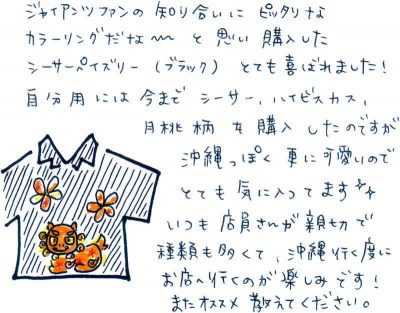 ジャイアンツファンの知り合いにピッタリな
カラーリングだな〜〜と思い購入した
シーサーペイズリー（ブラック）とても喜ばれました！
自分用には今までシーサー、ハイビスカス、
月桃柄を購入したのですが
沖縄っぽく更に可愛いので
とても気に入ってます
いつも店員さんが親切で
種類も多くて、沖縄行く度に
お店へ行くのが楽しみです！
またオススメ教えてください。